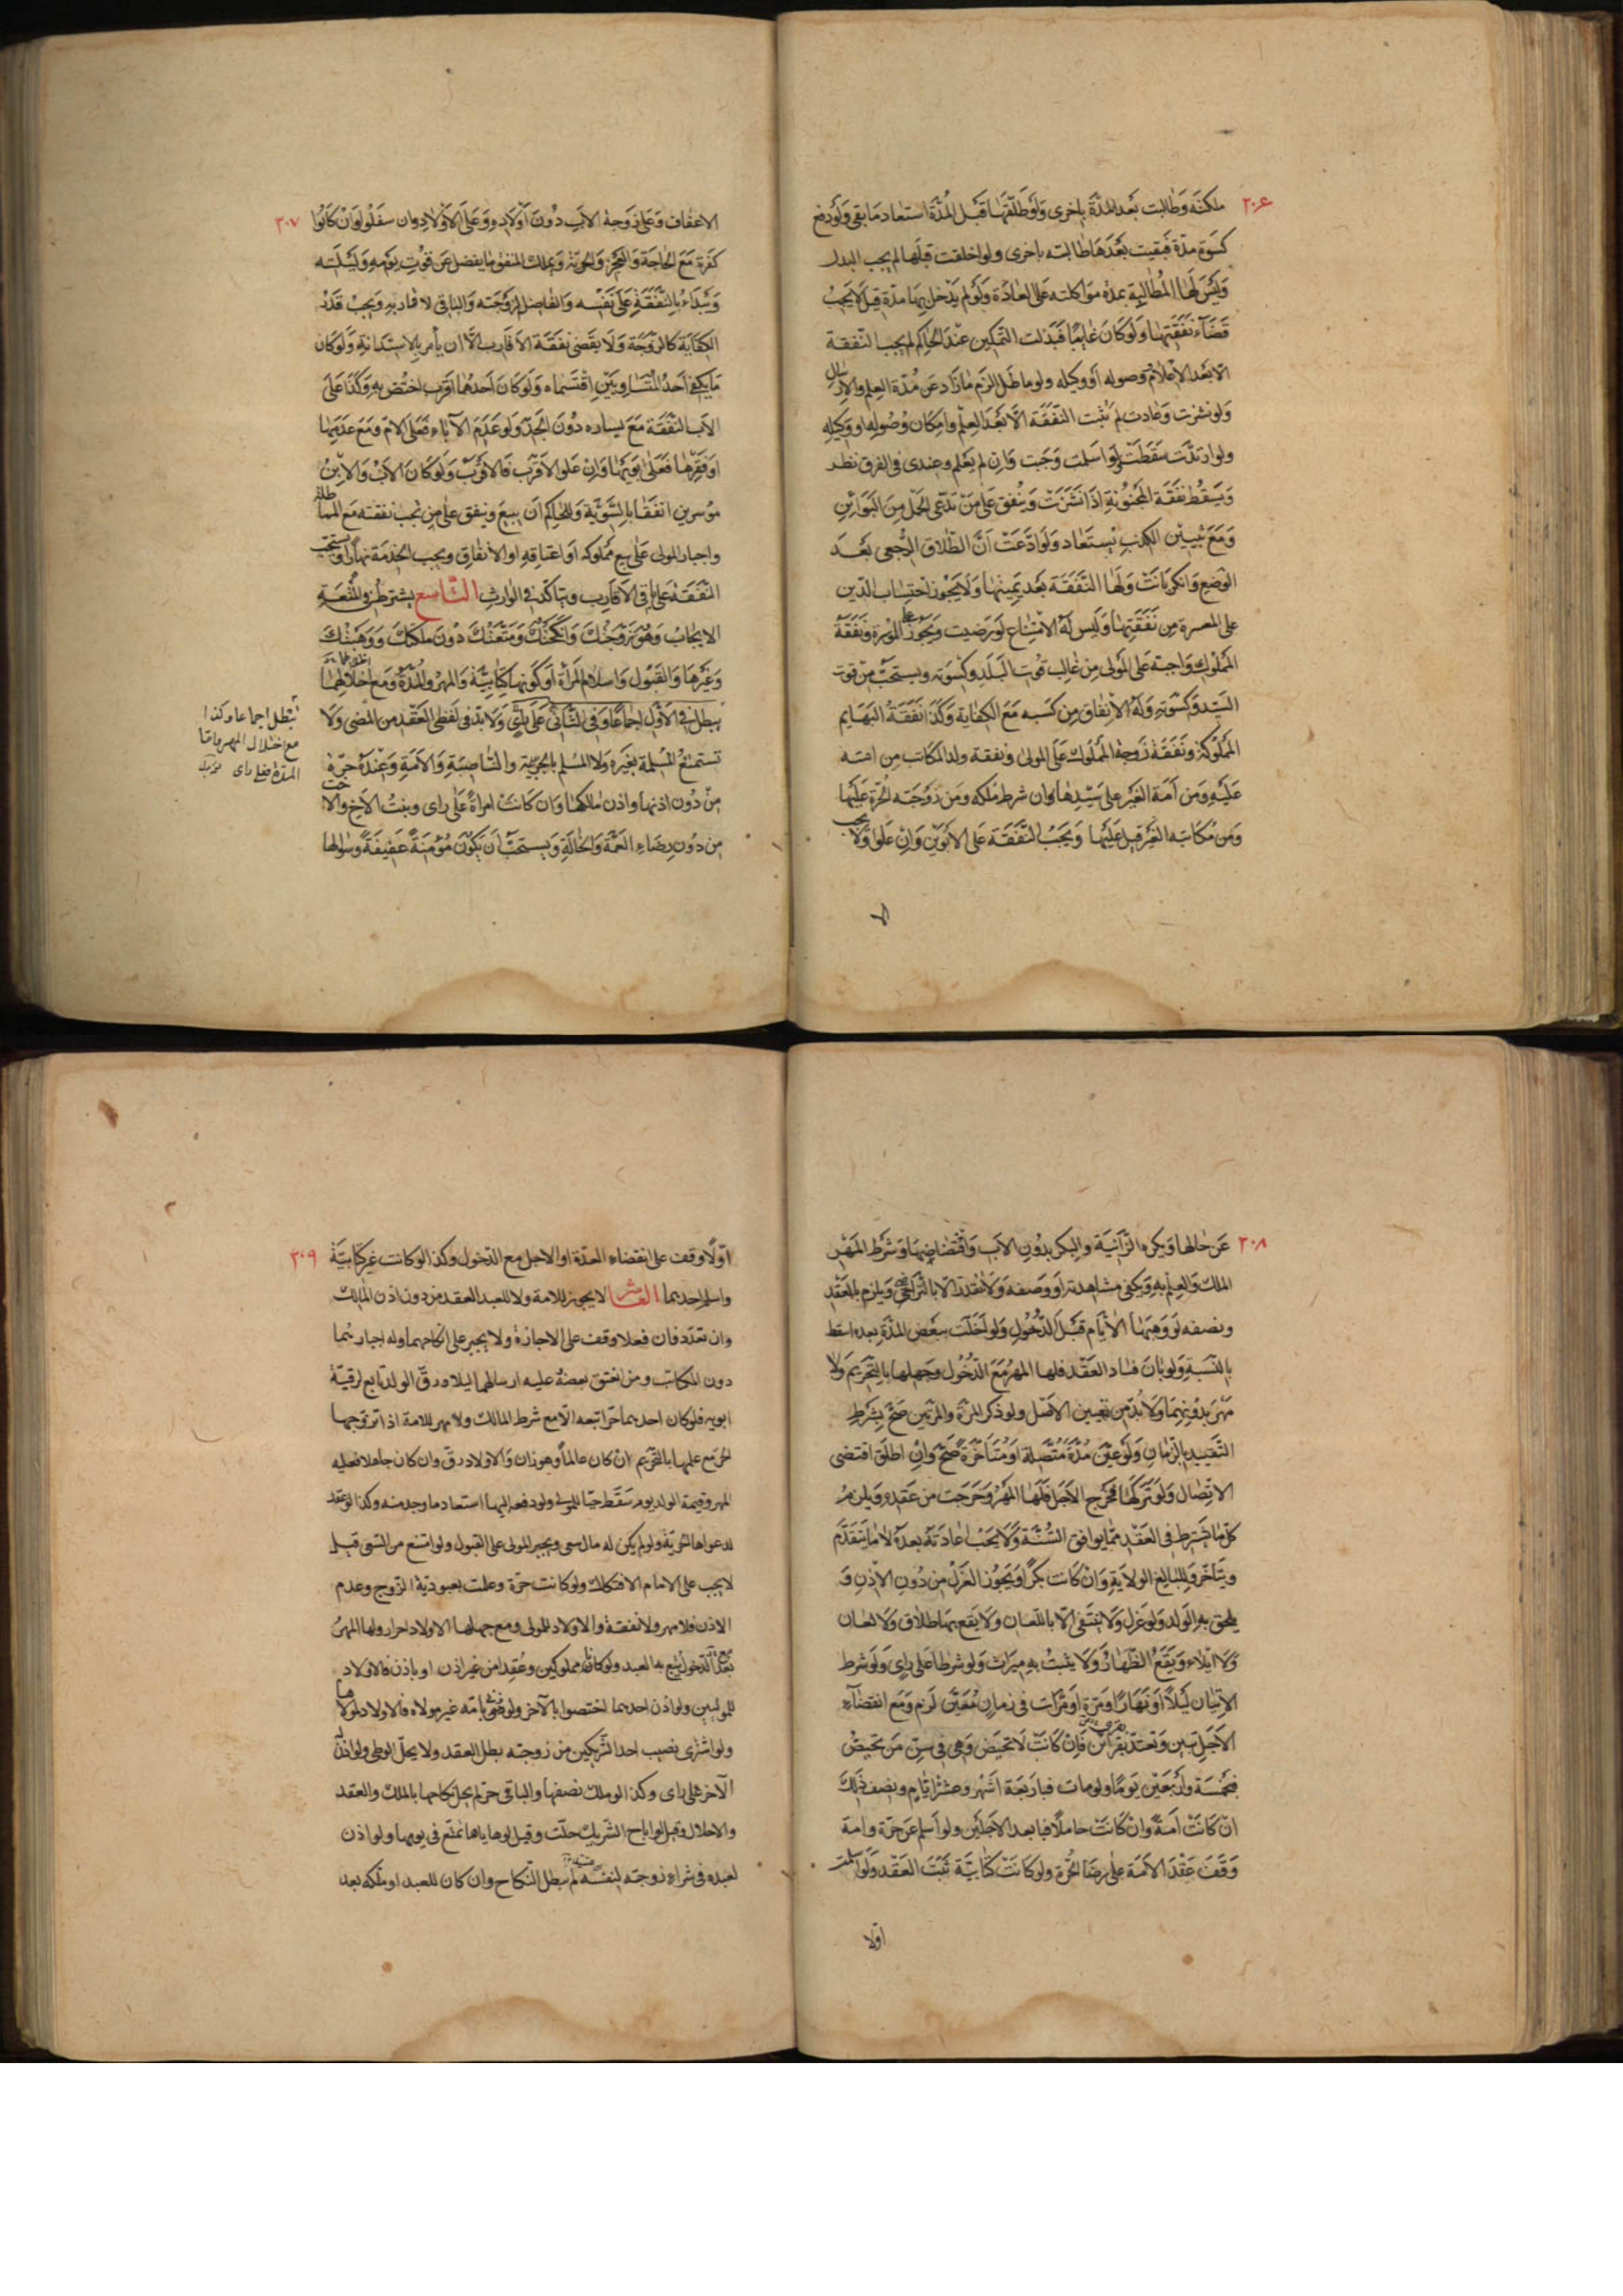 ٢٠٦
ملكته وطالبت بعد المدّة باخرى ولو طلّقها قبل المدّة استعاد ما بقى ولو دفع
كسوة مدّة فبقيت بعدها طالبته باخرى ولو اخلقت قبلها لم يجب البدل
وليس لها المطالبة عدة مواكلته على العادة ولو لم يدخل بها مدّة قيل لا يجب
قضاء نفقتها ولو كان غايبا فبذلت التمكين عند الحاكم لم يجب النفقة
الا بعد الاعلام وصوله او وكيله ولو ماطل الزم ما زاد عن مدّة العلم والارسال
ولو نشزت وعادت لم يثبت النفقة الا بعد العلم وامكان وصوله او وكيله
ولو ارتدّت سقطت ولو اسلمت وجبت وان لم يعلم وعندى فى الفرق نظر
ويسقط نفقة المجنونة اذا نشزت وينفق على من تدّعى الحمل من البوائن
ومع تبيين الكذب يستعاد ولو ادّعت انّ الطلاق الرجعى بعد
الوضع وانكر بانت ولها النفقة بعد يمينها ولا يجوز احتساب الدّين
على المعسرة من نفقتها وليس له الامتناع لو رضيت ويجوز على الموسرة ونفقة
المملوك واجبة على المولى من غالب قوت البلد وكسوته ويستحبّ من قوت
السيّد وكسوته وله الانفاق من كسبه مع الكفاية وكذا نفقة البهايم
المملوكة ونفقة زوجة المملوك على المولى ونفقة ولد المكاتب من امته
عليه ومن امة الغير على سيّدها وان شرط ملكه ومن زوجته الحرّة عليها
ومن مكاتبة الغير قيل عليها ويجب النفقة على الابوين وان علوا ولا يجب
٢٠٧
الاعفاف وعلى زوجة الاب دون اولاده وعلى الاولاد وان سفلوا وان كانوا
كفرة مع الحاجة والعجز والحرية وبملك المنفق ما يفضل عن قوت يومه وليلته
ويبداء بالنفقة على نفسه والفاضل لزوجته والباقى لاقاربه ويجب قدر
الكفاية كالزوجة ولا يقضى نفقة الاقارب الّا ان يأمر بالاستدانة ولو كان
ما يكفى احد المتساويين اقتسماه ولو كان احدهما اقرب اختصّ به وكذا على
الاب النفقة مع يساره دون الجدّ ولو عدم الآباء فعلى الام ومع عدمها
او فقرها فعلى ابويها وان علو الاقرب فالاقرب ولو كان الاب والابن
موسرين انفقا بالسّويّة وللحاكم ان يبيع وينفق على من يجب نفقته مع المماطلة
واجبار المولى على بيع مملوكه او اعتاقه او الانفاق ويجب الخدمة نهارا ويستحب
النفقة على باقى الاقارب ويتاكد فى الوارث التاسع يشترط فى المتعة
الايجاب وهو زوّجتك وانكحتك ومتّعتك دون ملكتك ووهبتك
وغيرها والقبول واسلام المرأة او كونها كتابيّة والمهر والمدّة ومع اخلالهما
يبطل فى الاوّل اجماعا وفى الثانى على رأى ولا بدّ فى لفظى العقد من المضى ولا
تستمتع المسلمة بغيره ولا المسلم بالحربيّة والناصبيّة والامة وعنده حرّة
من دون اذنها واذن مالكها وان كانت امراة على راى وبنت الاخ والاخت
من دون رضاء العمّة والخالة ويستحبّ ان يكون مؤمنة عفيفة وسؤالها
تبطل اجماعا وكذا
مع اخلال المهر واما
المدّة فعلى راى
٢٠٨
عن حالها ويكره الزّانية والبكر بدون الاب واقتضاضها وشرط المهر
الملك والعلم به ويكفى مشاهدته او وصفه ولا تقدّر الا بالتراضى ويلزم بالعقد
ونصفه لو وهبها الايام قبل الدخول ولو اخلّت ببعض المدّة بعده اسقط
بالنّسبة ولو بان فساد العقد فلها المهر مع الدّخول وجهلها بالتّحريم ولا
مهر بدونهما ولا بدّ من تعيين الاجل ولو ذكر المرّة والمرّتين صحّ بشرط
التقييد بالزمان ولو عيّن مدّة متّصلة او متأخرة صحّ وان اطلق اقتضى
الاتّصال ولو تركها فخرج الاجل فلها المهر وخرجت من عقده ويلزم
كلّ ما شرط فى العقد ممّا يوافق السّنّة ولا يجب اعادته بعده لا ما يتقدّم
ويتاخّر وللبالغ الولاية وان كانت بكرًا ويجوز العزل من دون الاذن و
يلحق به الولد ولو عزل ولا ينتفى الّا باللّعان ولا يقع بها طلاق ولا لعان
ولا ايلاء ويقع الظّهار ولا يثبت به ميراث ولو شرطا على راى ولو شرط
الاتيان ليلًا او نهارًا ومرّة او مرّات فى زمان معيّن لزم ومع انقضاء
الاجل تبين وتعتدّ بقرأين فان كانت لا تحيض وهى فى سنّ من تحيض
فبخمسة واربعين يوما ولو مات فباربعة اشهر وعشرة ايّام وبنصف ذلك
ان كانت امة وان كانت حاملًا فبابعد الاجلين ولو اسلم عن حرّة وامة
وقف عقد الامة على رضا الحرّة ولو كانت كتابيّة ثبت العقد ولو اسلمت
اوّلا
٢٠٩
اوّلا وقف على انقضاء العدّة او الاجل مع الدّخول وكذا لو كانت غير كتابيّة
واسلم احدهما العاشر لا يجوز للامة ولا للعبد العقد من دون اذن المالك
وان تعدّد فان فعلا وقف على الاجازة ولا يجبر على انكاحهما وله اجبارهما
دون المكاتب ومن انعتق بعضه عليه ارسالهما ليلا ورقّ الولد تابع لرقيّة
ابويه فلو كان احدهما حرّا تبعه الّا مع شرط المالك ولا مهر للامة اذا تزوّجها
الحر مع علمها بالتّحريم ان كان عالماً وهو زان والاولاد رقّ وان كان جاهلا فعليه
المهر وقيمة الولد يوم سقط حيّا للمولى ولو دفعه اليها استعاد ما وجد منه وكذا لو عقد
لدعواها الحريّة ولو لم يكن له مال سعى ويجبر المولى على القبول ولو امتنع من السّعى قيل
لا يجب على الامام الافتكاك ولو كانت حرّة وعلمت بعبوديّة الزّوج وعدم
الاذن فلا مهر ولا نفقة والاولاد للمولى ومع جهلها الاولاد احرار ولها المهر
بعد الدّخول يتبع به العبد ولو كانا مملوكين وعقدا من غير اذن او باذن فالاولاد
للموليين ولو اذن احدهما اختصوا بالآخر ولو زنى بامة غير مولاه فالاولاد لمولاها
ولو اشترى نصيب احد الشريكين من زوجته بطل العقد ولا يحلّ الوطى ولو اذن له
الآخر على راى وكذا لو ملك نصفها والباقى حرّ لم يحل نكاحها بالملك والعقد
والاحلال وقيل لو اباح الشريك حلّت وقيل لو هاياها تمتّع فى يومها ولو اذن
لعبده فى شراء زوجته لنفسه لم يبطل النّكاح وان كان للعبد او ملّكه بعد